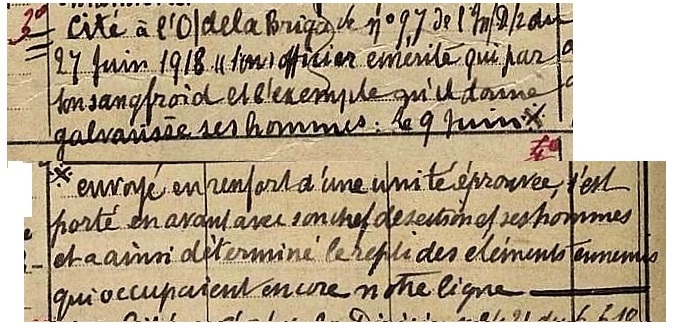 3° Cité à l'O/ de la Brigade n° 97 de l'Inf/D/2 du
27 Juin 1918 "Sous officier émérite qui par
son sang froid et l'exemple qu'il donne
galvanise ses hommes. Le 9 Juin ※
4°
※ envoyé en renfort d'une unité éprouvée, s'est
porté en avant avec son chef de section et ses hommes
et a ainsi déterminé le repli des eléments ennemis
qui occupaient encore notre ligne